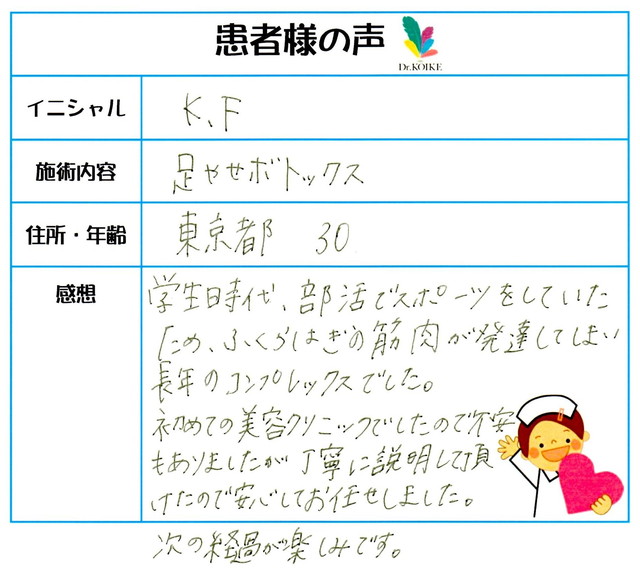 患者様の声
Dr.KOIKE
イニシャル
K、F
施術内容
足やせボトックス
住所・年齢
東京都 30
感想
学生時代、部活でスポーツをしていた
ため、ふくらはぎの筋肉が発達してしまい
長年のコンプレックスでした。
初めての美容クリニックでしたので不安
もありましたが丁寧に説明して頂
けたので安心してお任せしました。
次の経過が楽しみです。